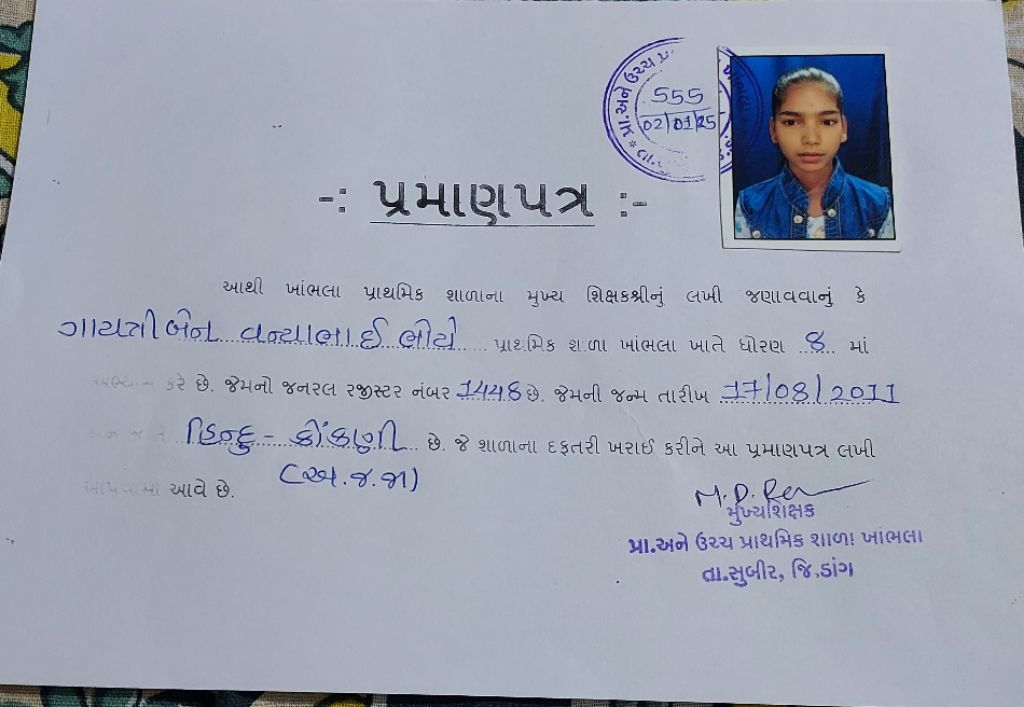 પ્રા.અને ઉચ્ચ પ્રા.
555
02/01/25
તા.
-: પ્રમાણપત્ર :-
આથી ખાંભલા પ્રાથમિક શાળાના મુખ્ય શિક્ષકશ્રીનું લખી જણાવવાનું કે
ગાયત્રીબેન વન્યાભાઈ ભોયે પ્રાથમિક શાળા ખાંભલા ખાતે ધોરણ 8 માં
અભ્યાસ કરે છે. જેમનો જનરલ રજીસ્ટર નંબર 1448 છે. જેમની જન્મ તારીખ 17/08/2011
હિન્દુ - કોંકણી છે. જે શાળાના દફતરી ખરાઈ કરીને આ પ્રમાણપત્ર લખી
(અ.જ.જા)
આપવામાં આવે છે.
M.D.
મુખ્યશિક્ષક
પ્રા.અને ઉચ્ચ પ્રાથમિક શાળા ખાંભલા
તા.સુબીર, જિ.ડાંગ